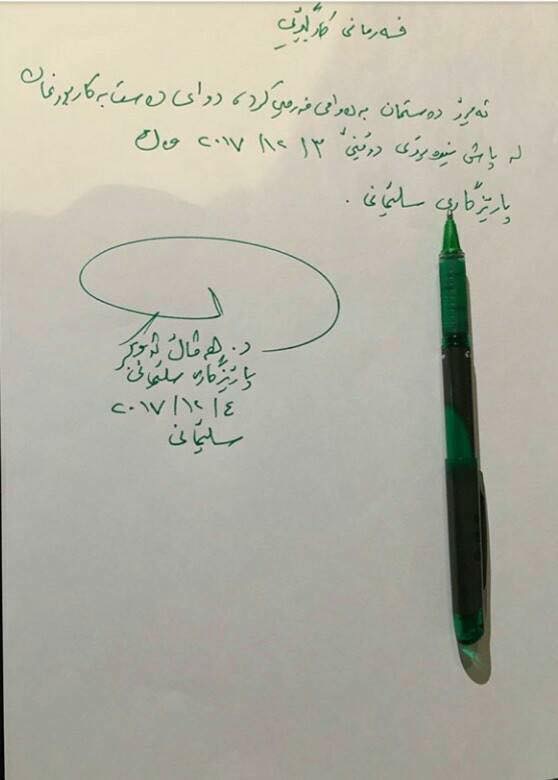 فەرمانی کارگێڕی
ئەمڕۆ دەستمان بەدەوامی فەرمی کرد، دوای دەست بەکاربوونمان
لە پاش نیوەڕۆی دوێنێ ٢٠١٧/١٢/٣ وەک
پارێزگاری سلێمانی.
د. هەڤاڵ ئەبوبکر
پارێزگاری سلێمانی
٢٠١٧/١٢/٤
سلێمانی